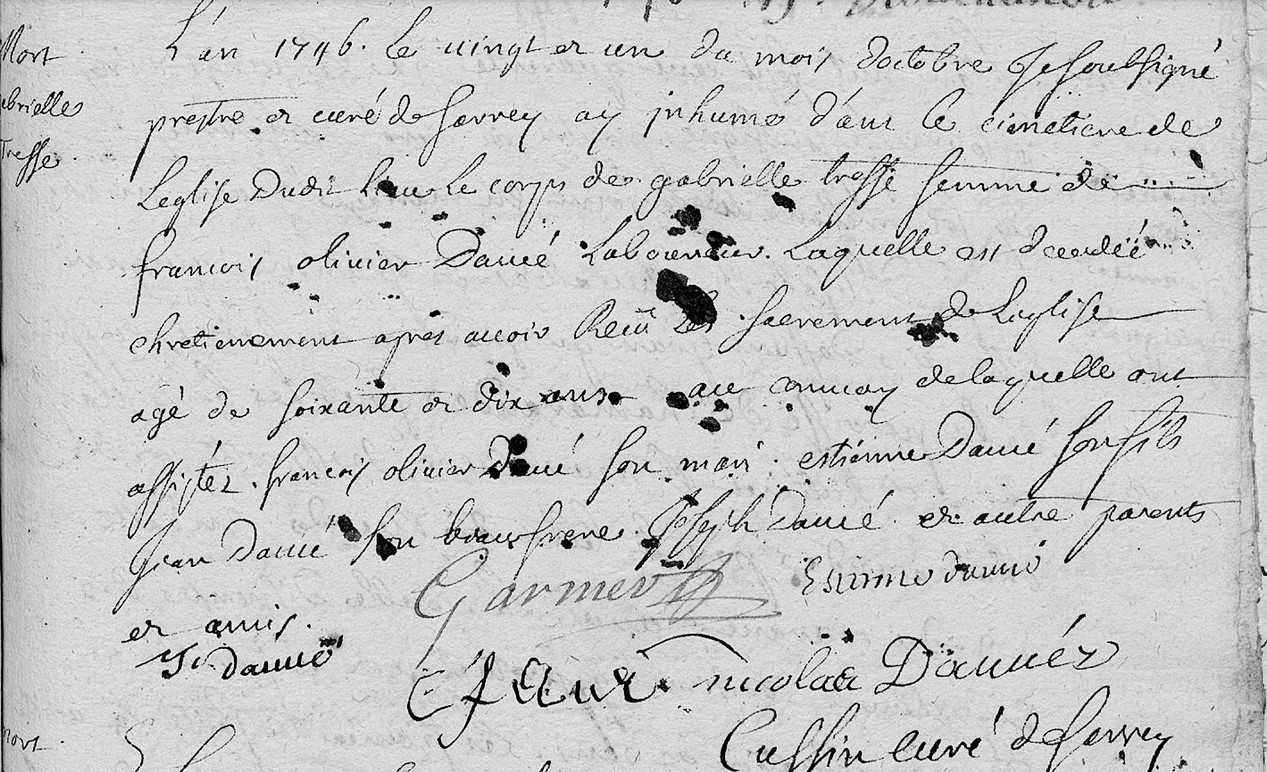 Mort
abrielle
Tresse
L'an 1746. Le uingt et un du mois doctobre Je soubsigné
prestre et curé de Sarrey ay jnhumé dans le cimetiere de
Leglise Dudit Lieu Le corps de gabrielle tresse femme de
francois olivier Daué Laboureur. Laquelle est decedéé
chretienement apres auoir Reçu Les sacrement de Leglise
agé de soixante et dix ans au conuoy de laquelle ont
assistez. francois olivier Daué son mari. estienne Daué son fils
Jean Daué son beau frere Joseph daué et autre parents
et amis.
Garnier Estienne daué
J daué
nicolas Dauéz
Cussin curé de Sarrey
mort